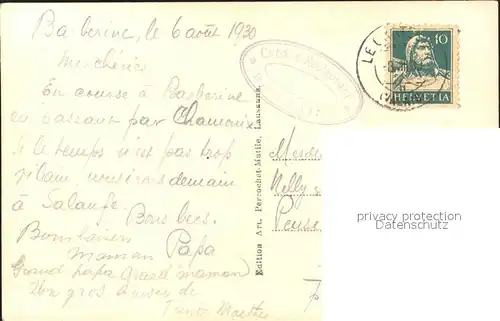 Barberine, le 6 août 1930
Mes chéries
En course à Barberine
en passant par Chamonix
si le temps n'est pas trop
vilain, nous irons demain
à Salanfe.
Bons becs.
Papa
Bons baisers
Maman
Grand papa Grand maman
Un gros baiser de
Tante Marthe
Edition Art. Perrochet-Matile, Lausanne
10
HELVETIA
Nelly
privacy protection
Datenschutz